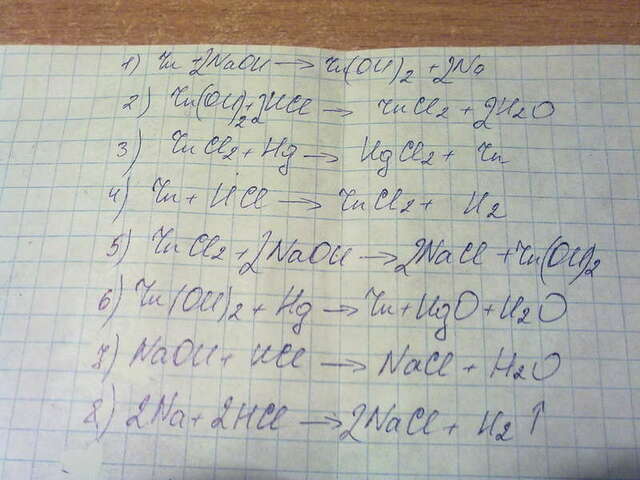 1) Zn + 2NaOH → Zn(OH)₂ + 2Na
2) Zn(OH)₂ + 2HCl → ZnCl₂ + 2H₂O
3) ZnCl₂ + Hg → HgCl₂ + Zn
4) Zn + HCl → ZnCl₂ + H₂
5) ZnCl₂ + 2NaOH → 2NaCl + Zn(OH)₂
6) Zn(OH)₂ + Hg → Zn + HgO + H₂O
7) NaOH + HCl → NaCl + H₂O
8) 2Na + 2HCl → 2NaCl + H₂↑